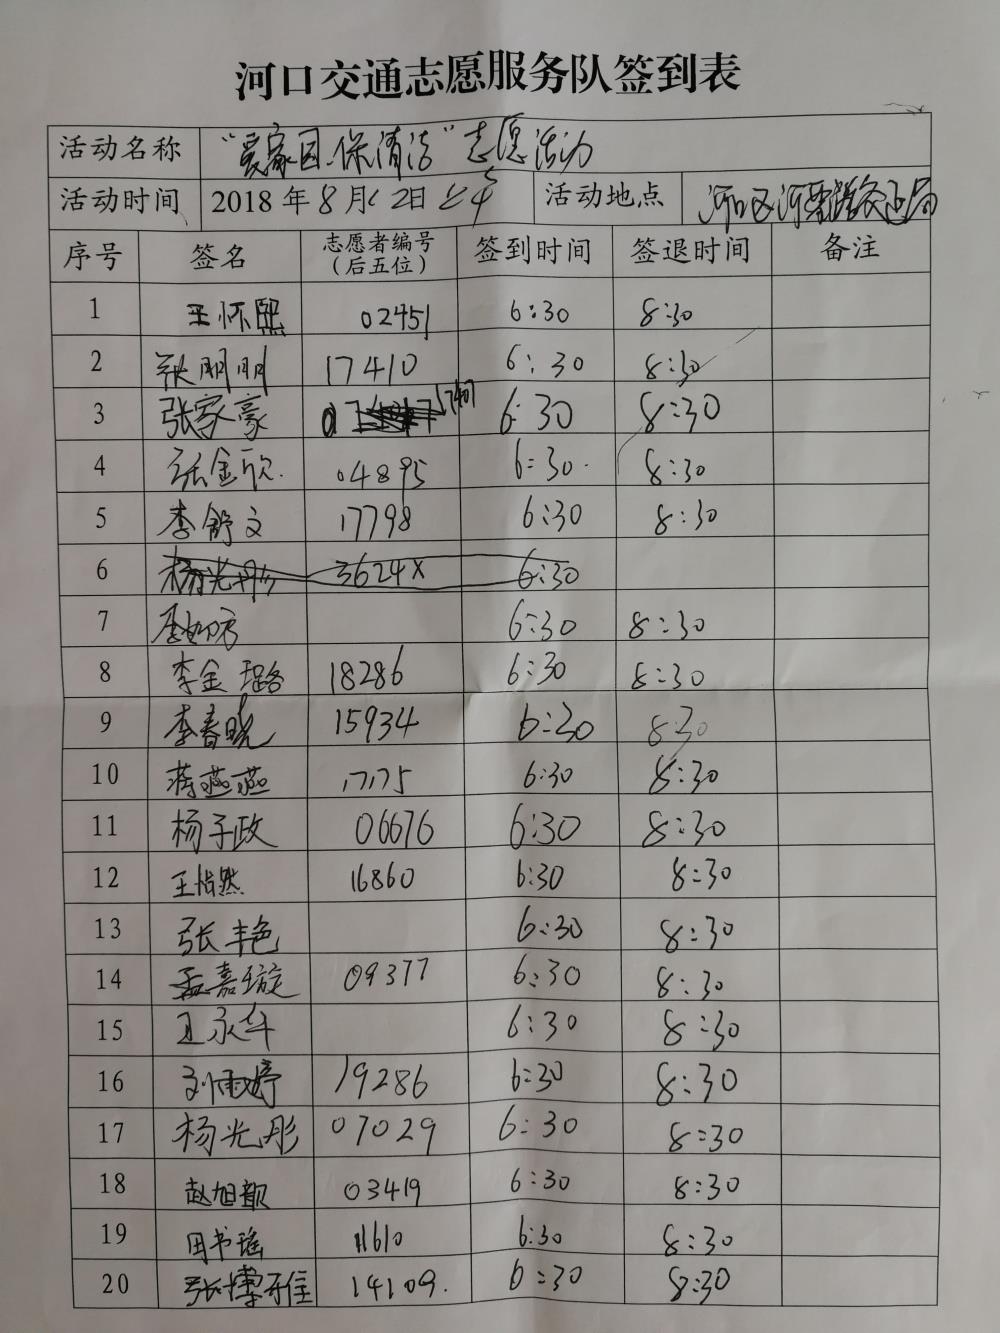 河口交通志愿服务队签到表
活动名称 “爱家园·保清洁”志愿活动
活动时间 2018年8月12日上午 活动地点 河口区
序号 签名 志愿者编号（后五位） 签到时间 签退时间 备注
1 王怀熙 02451 6:30 8:30
2 张明明 17410 6:30 8:30
3 张家豪 6:30 8:30
4 张金欣 04895 6:30 8:30
5 李舒文 17798 6:30 8:30
6 杨光彤 3624X 6:30
7 6:30 8:30
8 李金璐 18286 6:30 8:30
9 李春晓 15934 6:30 8:30
10 蒋燕燕 17175 6:30 8:30
11 杨子政 06676 6:30 8:30
12 王怡然 16860 6:30 8:30
13 张丰色 6:30 8:30
14 孟嘉璇 09377 6:30 8:30
15 王永华 6:30 8:30
16 刘雨婷 19286 6:30 8:30
17 杨光彤 07029 6:30 8:30
18 赵旭歆 03419 6:30 8:30
19 田书瑶 11610 6:30 8:30
20 张博佳 14109. 6:30 8:30